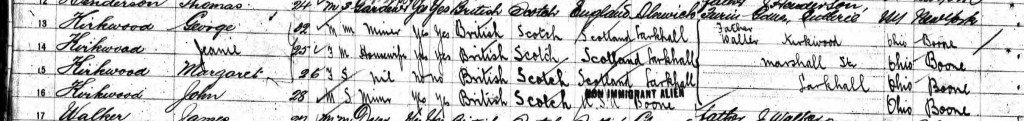 12 Henderson Thomas 24 M S Gardener Yes Yes British Scotch England Alnwick Henderson, NY New York
13 Kirkwood George 22 M M Miner Yes Yes British Scotch Scotland Larkhall Father Walter Kirkwood Ohio Boone
14 Kirkwood Jeanie 25 F M Housewife Yes Yes British Scotch Scotland Larkhall Marshall St Ohio Boone
15 Kirkwood Margaret F S nil No No British Scotch Scotland Larkhall Larkhall Ohio Boone
16 Kirkwood John 28 M S Miner Yes Yes British Scotch U.S.A Boone NON IMMIGRANT ALIEN Ohio Boone
17 Walker James British Scotch Father J Walker